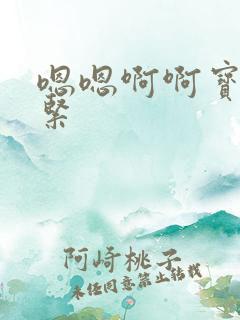 嗯嗯啊啊寶
緊
阿崎桃子
未经同意禁止转载